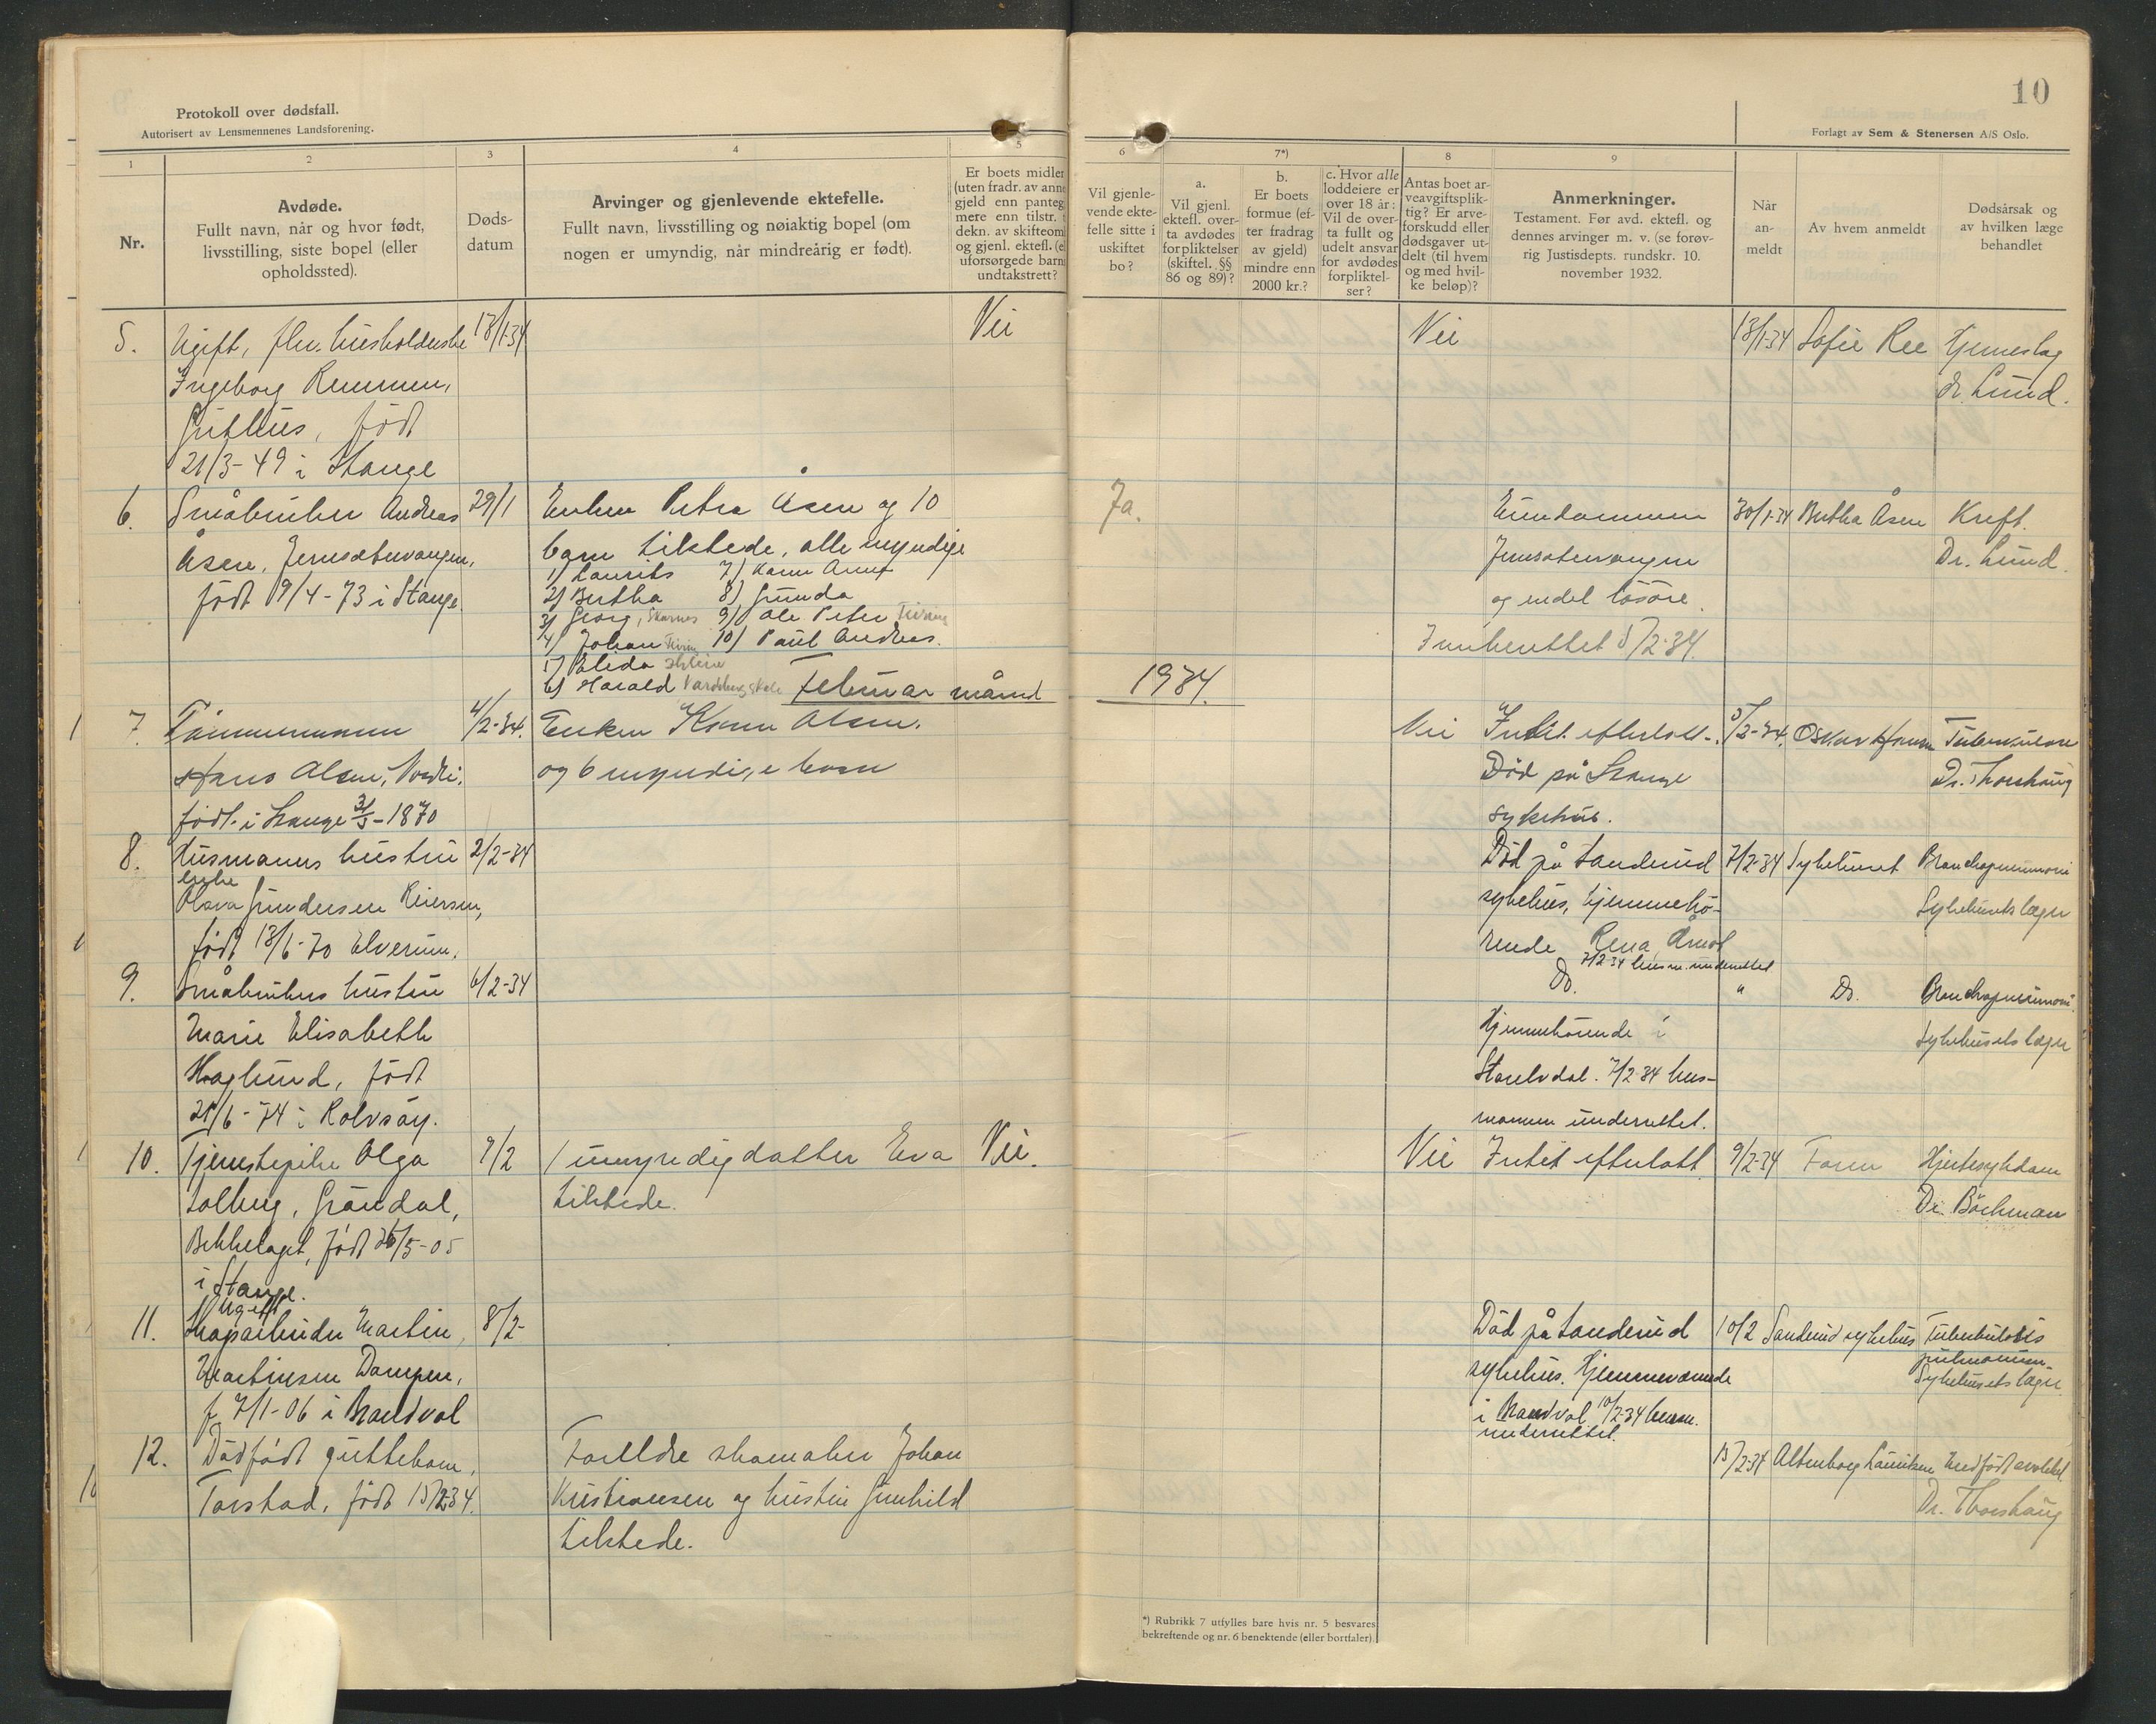 Protokoll over dødsfall.
Autorisert av Lensmennenes Landsforening.
10
Forlagt av Sem & Stenersen A/S Oslo.
1
2
3
4
5
6
7*)
8
9
Nr.
Avdøde.
Fullt navn, når og hvor født,
livsstilling, siste bopel (eller
opholdssted).
Døds-
datum
Arvinger og gjenlevende ektefelle.
Fullt navn, livsstilling og nøiaktig bopel (om
nogen er umyndig, når mindreårig er født).
Er boets midler
(uten fradr. av anne
gjeld enn panteg
mere enn tilstr. t
dekn. av skifteom
og gjenl. ektefl. (el
uforsørgede barns
undtakstrett?
Vil gjenle-
vende ekte-
felle sitte i
uskiftet
bo?
a.
Vil gjenl.
ektefl. over-
ta avdødes
forpliktelser
(skiftel. §§
86 og 89)?
b.
Er boets
formue (ef-
ter fradrag
av gjeld)
mindre enn
2000 kr.?
c. Hvor alle
loddeiere er
over 18 år:
Vil de over-
ta fullt og
udelt ansvar
for avdødes
forpliktel-
ser?
Antas boet ar-
veavgiftsplik-
tig? Er arve-
forskudd eller
dødsgaver ut-
delt (til hvem
og med hvil-
ke beløp)?
Anmerkninger.
Testament. Før avd. ektefl. og
dennes arvinger m. v. (se forøv-
rig Justisdepts. rundskr. 10.
november 1932.
Når
an-
meldt
Av hvem anmeldt
Dødsårsak og
av hvilken læge
behandlet
5. Ugift, fhv. husholderske 13/1-34 Nei Nei 13/1-34 Sofie Ree Hjerneslag
Ingeborg Remmen, dr. Lund.
født
21/3-49 i Stange
6. Småbruker Andreas 29/1 Enken Petra Åsen og 10 Ja. Eiendommen 30/1-34 Bertha Åsen Kreft.
Åsen, Jernsætervangen, barn tilstede, alle myndige Jernsætervangen Dr. Lund
født 9/4-73 i Stange
1) Laurits 7) Karen Anna
2) Bertha 8) Gunda og endel løsøre.
3) Georg, Skarnes 9) Ole Peter
4) Johan 10) Paul Andreas. Innberettet 5/2-34.
5) Elida
6) Harald
Februar måned 1934.
7. Tømmermann 4/2-34. Enken Karen Olsen. Nei Intet efterlatt. 5/2-34. Oskar Hansen Tuberkulose
Hans Olsen, og 6 myndige barn Død på Stange Dr. Thorshaug
født i Stange 31/5-1870 sykehus.
8. Husmanns hustru 2/2-34 Død på Sanderud 7/2-34 Sykehuset Bronchopneumoni
enke
Olava Gundersen Reiersen, sykehus, hjemmehø- Sykehusets læger
født 13/6-70 Elverum. rende Rena Åmot
7/2-34 lensm. underrettet
9. Småbrukers hustru 6/2-34 Do. " Do. Bronchopneumoni.
Marie Elisabeth Hjemmehørende i Sykehusets læger
Haglund, født Storelvdal. 7/2-34 lens-
21/6-74 i Rolvsøy. mannen underrettet.
10. Tjenestepike Olga 7/2 1 umyndig datter Eva Nei. Nei Intet efterlatt 9/2-34 Faren Hjertesykdom
Solberg, Grøndal, tilstede. Dr. Böckman
Bekkelaget, født 26/5-05
i Stange.
Ugift
11. Skogarbeider Martin 8/2- Død på Sanderud 10/2 Sanderud sykehus Tuberkulosis
Martinsen Dampen, sykehus. Hjemmeværende pulmonum-
Sykehusets læger
f. 7/1-06 i Brandval i Brandval 10/2-34 lensm.
underrettet.
12. Dødfødt guttebarn, Foreldre skomaker Johan 15/2-34 Altenborg Lauritsen Medfødt svakhet
Torstad, født 15/2-34. Kristiansen og hustru Gunhild Dr. Thorshaug
tilstede.
*) Rubrikk 7 utfylles bare hvis nr. 5 besvares
bekreftende og nr. 6 benektende (eller bortfaler).